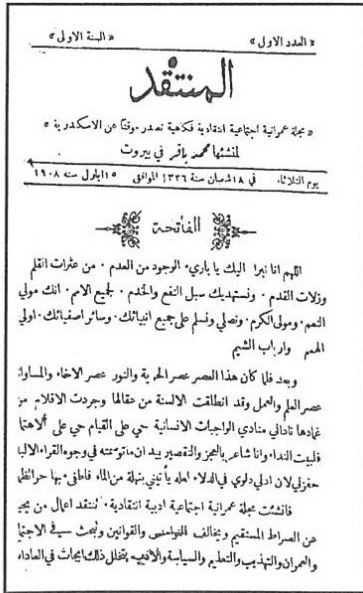 « العدد الاول » « السنة الاولى »
المنتقد
« مجلة عمرانية اجتماعية انتقادية فكاهية تصدر موقتًا عن الاسكندرية »
لمنشئها محمد باقر في بيروت
يوم الثلاثاء في ١٨ شعبان سنة ١٣٢٦ الموافق ١٥ ايلول سنه ١٩٠٨
الفاتحة
اللهم انا نبرا اليك يا باري الوجود من العدم ٠ من عثرات القلم
وزلات القدم ٠ ونستهديك سبل النفع والخدم ٠ لجميع الامم ٠ انك مولي
النعم ٠ ومولى الكرم ٠ ونصلي ونسلم على جميع انبيائك ٠ وسائر اصفيائك ٠ اولي
الهمم وارباب الشيم
وبعد فلما كان هذا العصر عصر الحرية والنور عصر الاخاء والمساواة
عصر العلم والعمل وقد انطلقت الالسنة من عقالها وجردت الاقلام من
غمادها ناداني منادي الواجبات الانسانية حي على القيام حي على
فلبيت النداء وانا شاعر بالعجز والتقصير بيد ان ما توسمته في وجوه القراء الالبا
حفزني لان ادلي دلوي في الدلاء لعله يأتيني بنهلة من الماء فاطفئ بها حر
فانشئت مجلة عمرانية اجتماعية ادبية انتقادية ٠ تنتقد اعمال من يحيد
عن الصراط المستقيم ويخالف النواميس والقوانين وتبحث في الاجتما
والعمران والتهذيب والتعليم والسياسة والادب يتخلل ذلك ابحاث في العادات